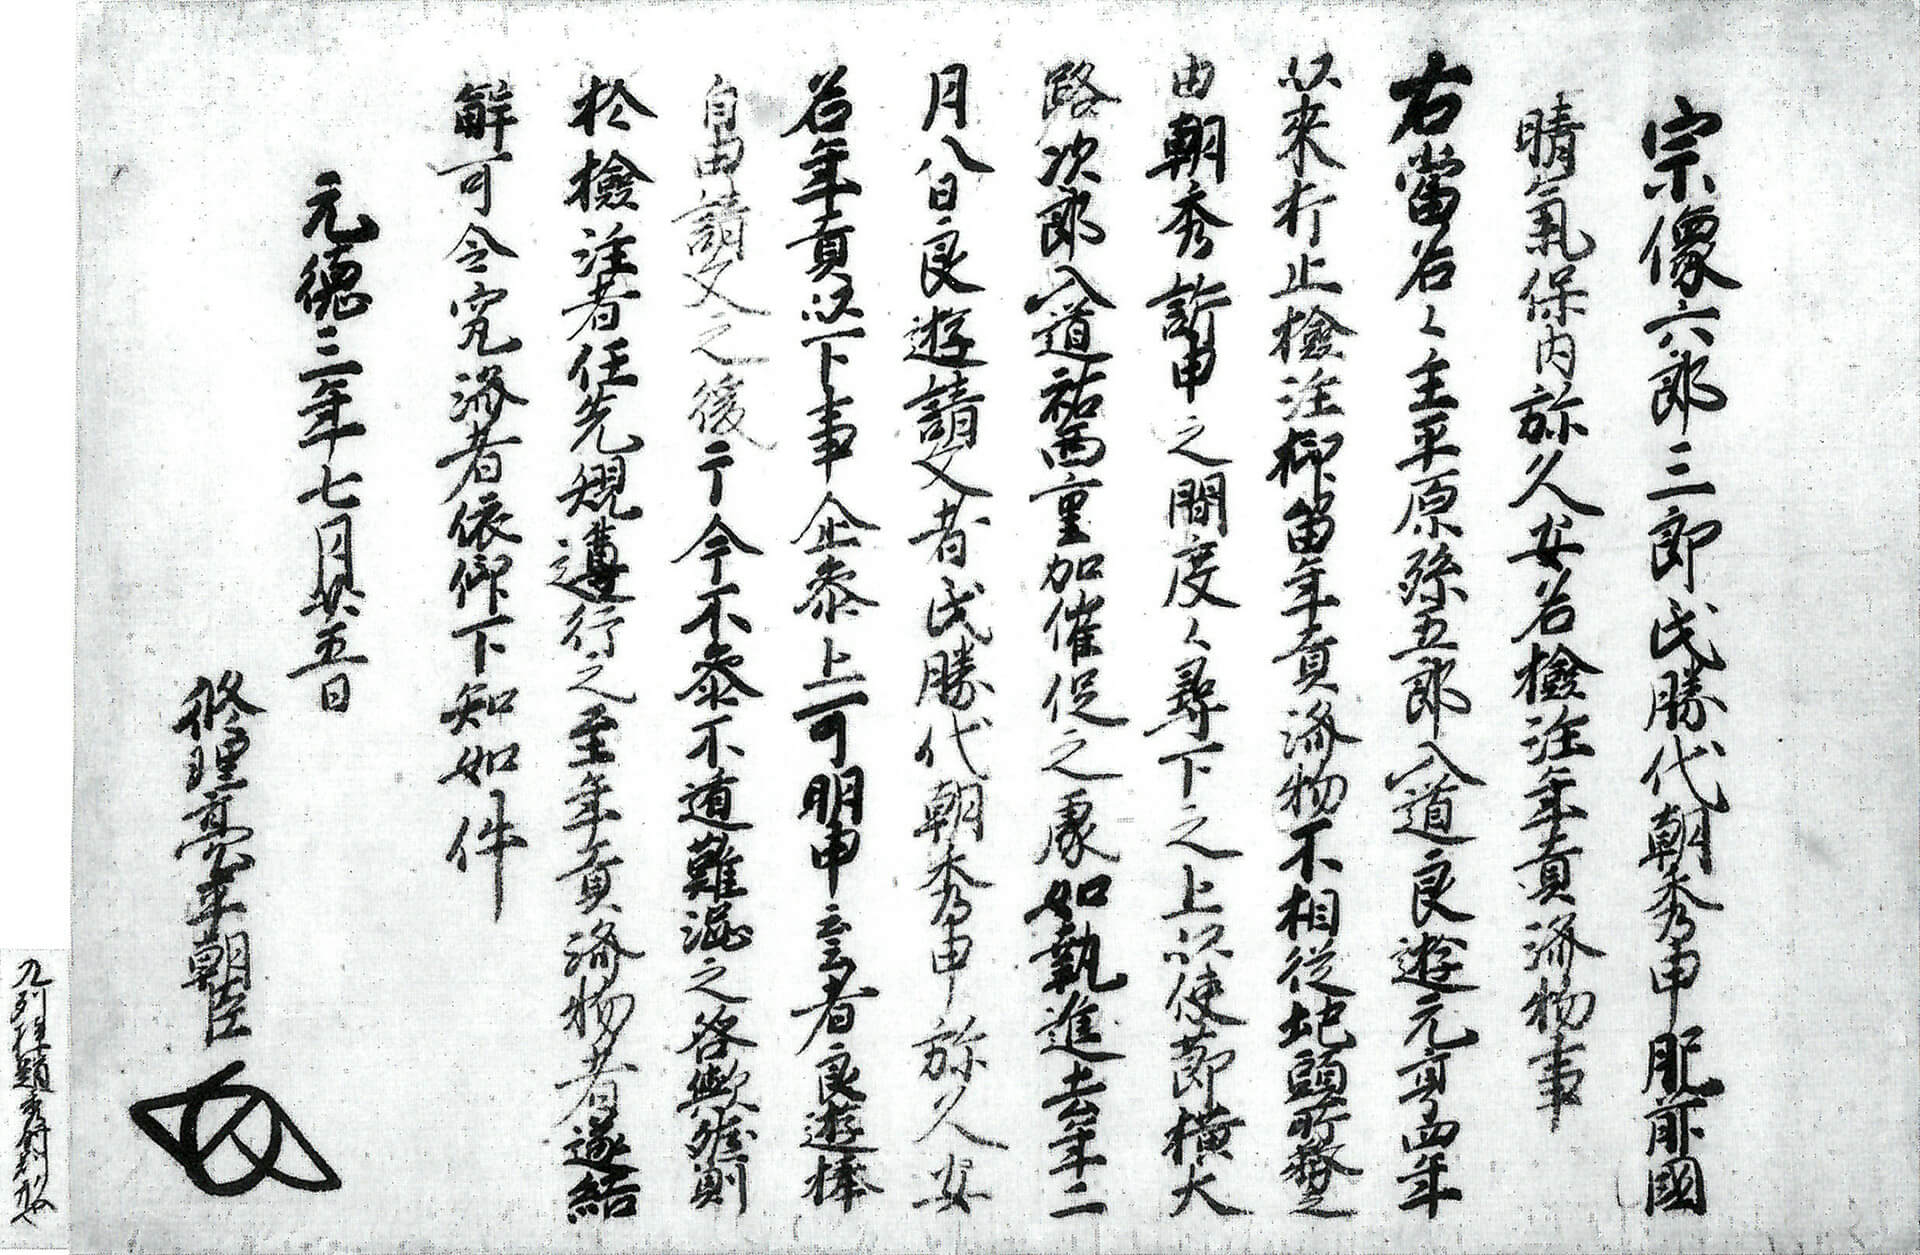 宗像六郎三郎氏勝代朝秀申肥前國
晴氣保内弥久安名檢注年貢済物事
右當名々主平原孫五郎入道良遊元亨四年
以来打止檢注抑留年貢済物不相従地頭所務之
由朝秀訴申之間度々尋下之上以使節横大
路次郎入道祐西重加催促之處如執進去年二
月八日良遊請文者氏勝代朝秀申弥久安
名年貢以下事企参上可明申云々者良遊捧
自由請文之後于今不参不遁難渋之咎歟然則
於檢注者任先規遵行之至年貢済物者遂結
解可令究済者依仰下知如件
元徳三年七月廿五日
修理亮平朝臣